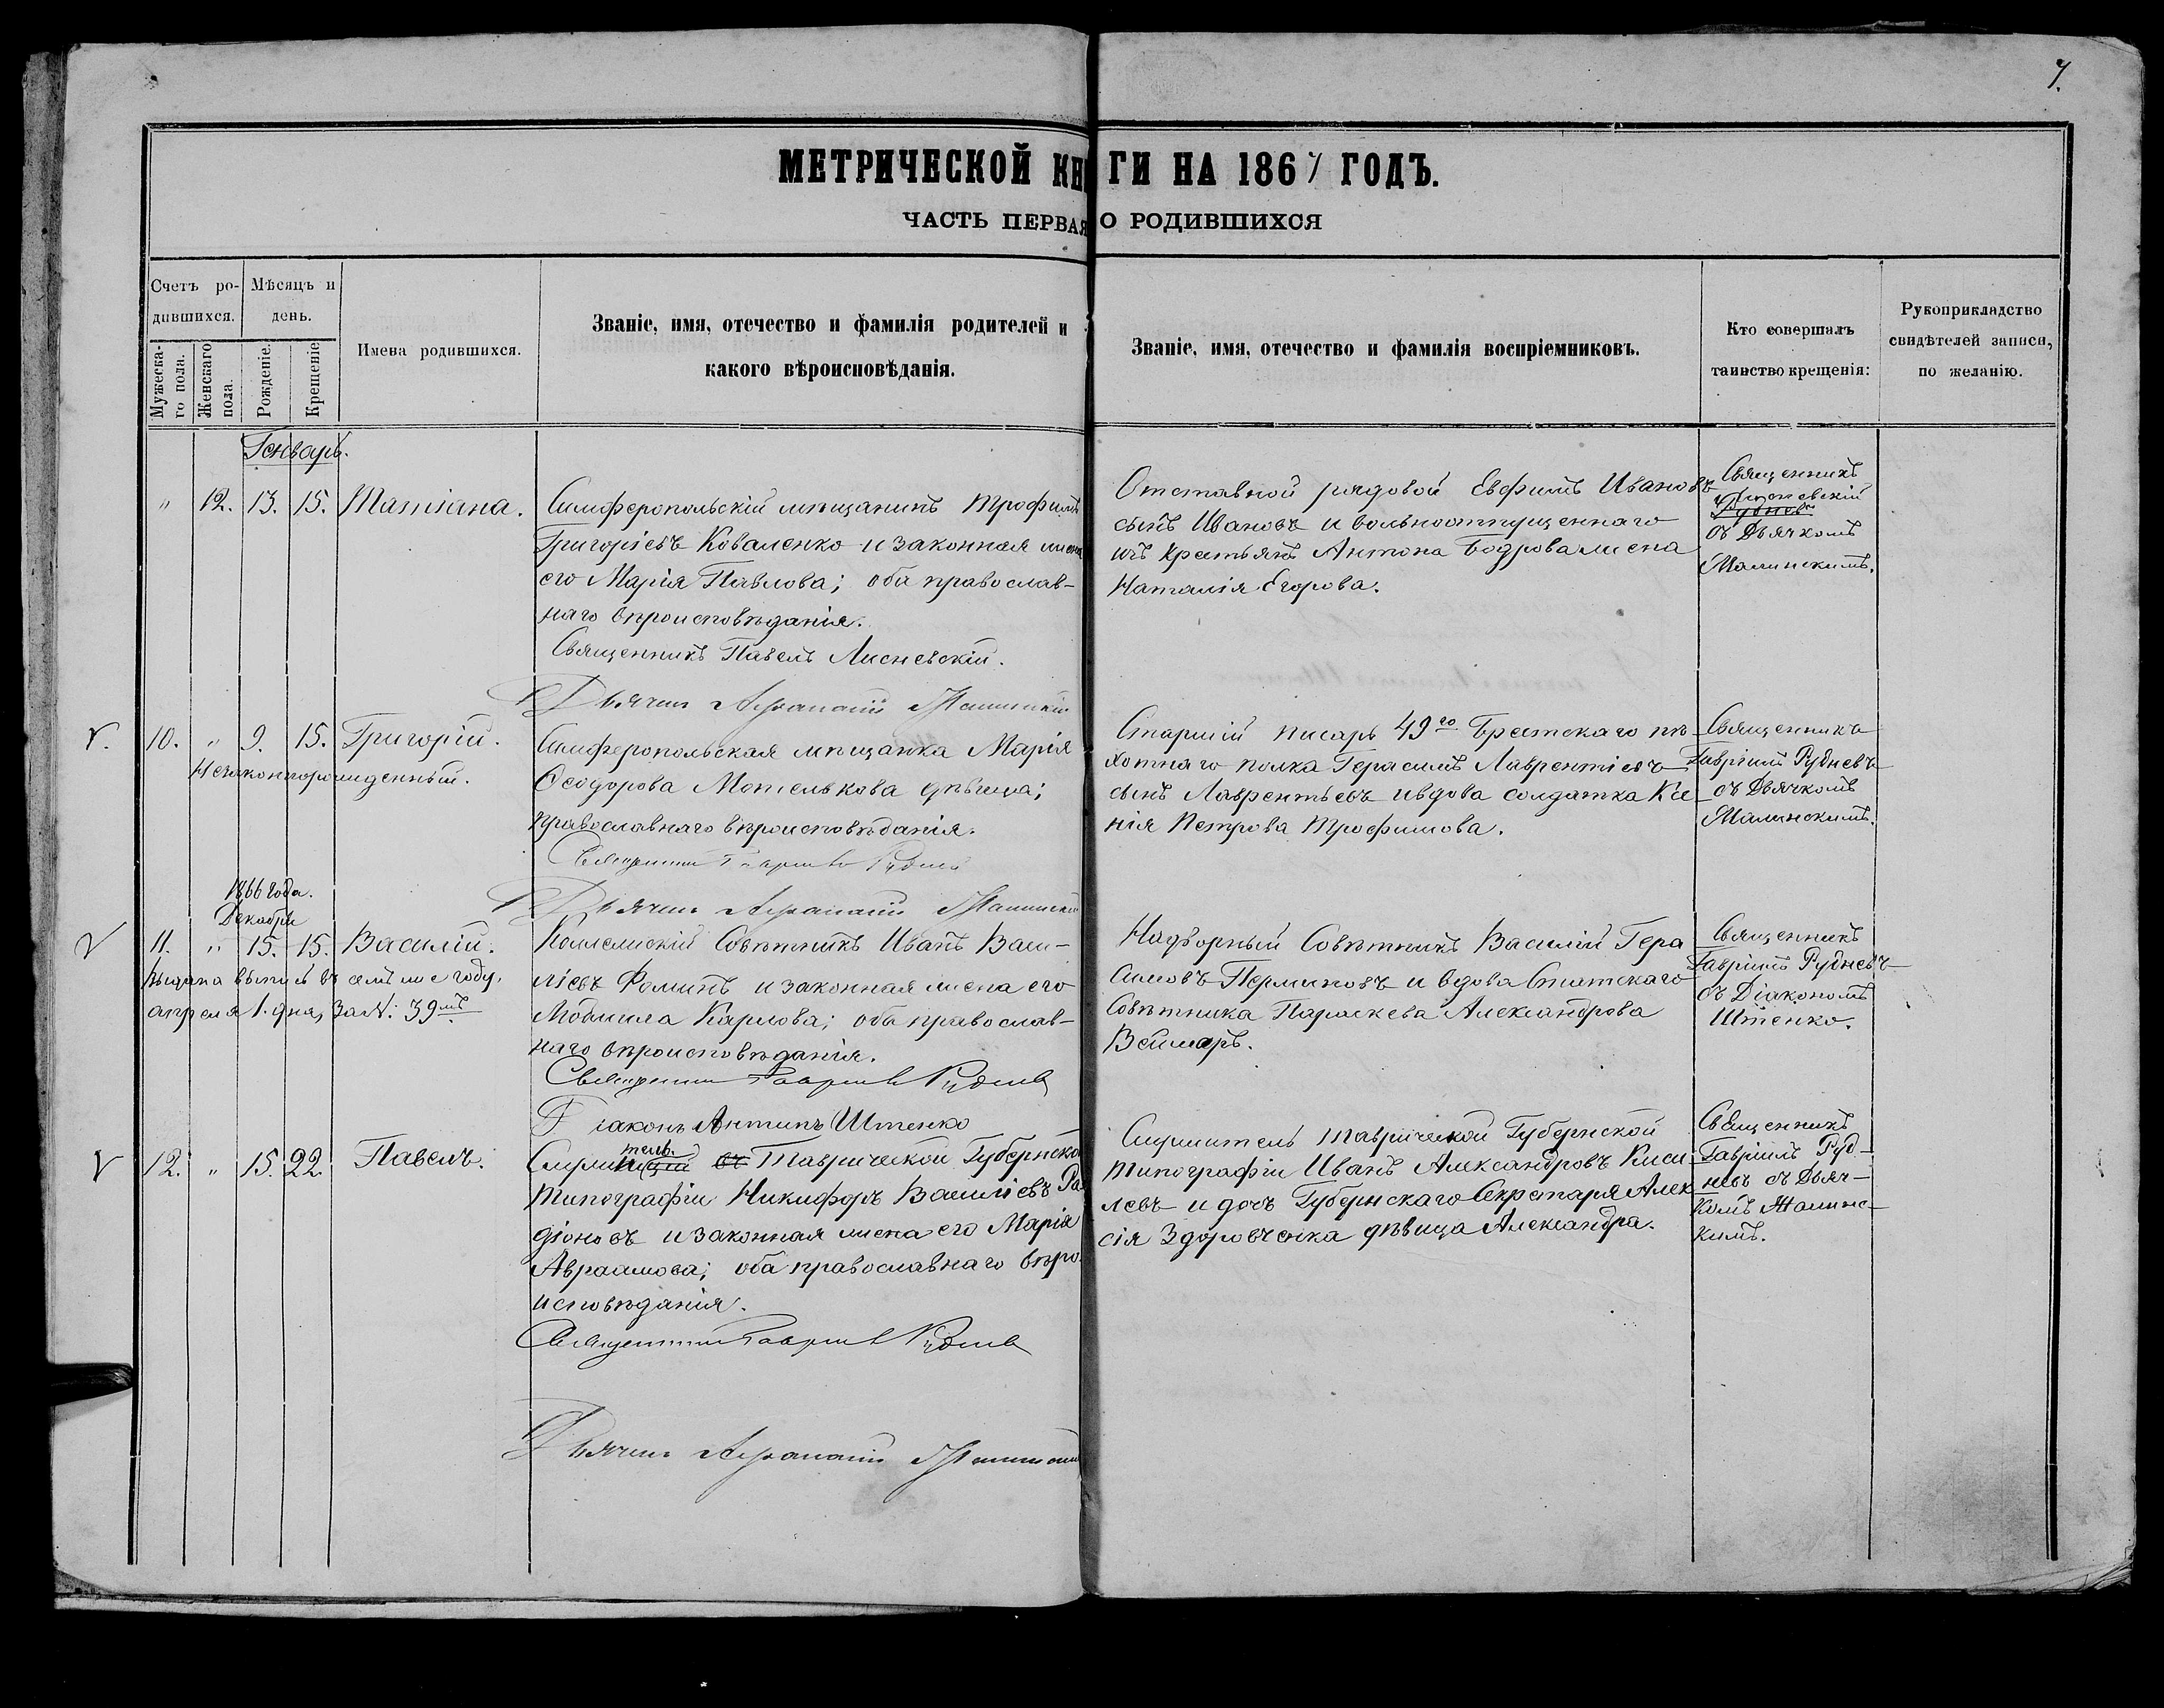 7.
МЕТРИЧЕСКОЙ КНИГИ НА 1867 ГОДЪ.
ЧАСТЬ ПЕРВАЯ О РОДИВШИХСЯ
Счетъ ро-
дившихся.
Мужеска-
го пола.
Женскаго
пола.
Мѣсяцъ и
день.
Рожденіе.
Крещеніе
Имена родившихся.
Званіе, имя, отечество и фамилія родителей и
какого вѣроисповѣданія.
Званіе, имя, отечество и фамилія воспріемниковъ.
Кто совершалъ
таинство крещенія:
Рукоприкладство
свидѣтелей записи,
по желанію.
Генварь.
„ 12. 13. 15. Татіана.
Симферопольскій мѣщанинъ Трофимъ
Григоріевъ Коваленко и законная жена
его Марія Павлова; оба православ-
наго вѣроисповѣданія.
Священникъ Павелъ Лисневскій.
Дьячекъ Малинскій
Отставной рядовой Евфимъ Ивановъ
сынъ Ивановъ и вольноотпущеннаго
изъ крестьянъ Антона Бодрова жена
Наталія Егорова.
Священникъ
Лисневскій
Рудневъ
съ Дьячкомъ
Малинскимъ.
10. „ 9. 15. Григорій.
Незаконнорожденный.
Симферопольская мѣщанка Марія
Ѳеодорова Мотелькова дѣвица;
православнаго вѣроисповѣданія.
Священникъ Гавріилъ Рудневъ
Дьячекъ Малинскій
Старшій писарь 49го Брестскаго пѣ-
хотнаго полка Герасимъ Лаврентіевъ
сынъ Лаврентьевъ и вдова солдатка Ксе-
нія Петрова Трофимова.
Священникъ
Гавріилъ Рудневъ
съ Дьячкомъ
Малинскимъ.
1866 года.
Декабря
11. „ 15. 15. Василій.
Выдана выпись въ семъ же году,
апреля 1. дня, за №: 39мъ
Коллежскій Совѣтникъ Иванъ Васи-
ліевъ Фоминъ и законная жена его
Людмила Карлова; оба православ-
наго вѣроисповѣданія.
Священникъ Гавріилъ Рудневъ
Діаконъ Антипъ Штенко
Надворный Совѣтникъ Василій Гера
симовъ Перминовъ и вдова Статскаго
Совѣтника Параскева Александрова
Веймаръ.
Священникъ
Гавріилъ Рудневъ
съ Діакономъ
Штенко.
12. „ 15. 22. Павелъ.
тель.
въ Таврической Губернской
Типографіи Никифоръ Василіевъ Ра
діоновъ и законная жена его Марія
Авраамова; оба православнаго вѣро-
исповѣданія.
Священникъ Гавріилъ Рудневъ
Дьячекъ Малинскій
Служитель Таврической Губернской
Типографіи Иванъ Александровъ Кисе
левъ и дочь Губернскаго Секретаря Алек
сія Здоровченка дѣвица Александра.
Священникъ
Гавріилъ Руд-
невъ съ Дьяч-
комъ Малинс-
кимъ.